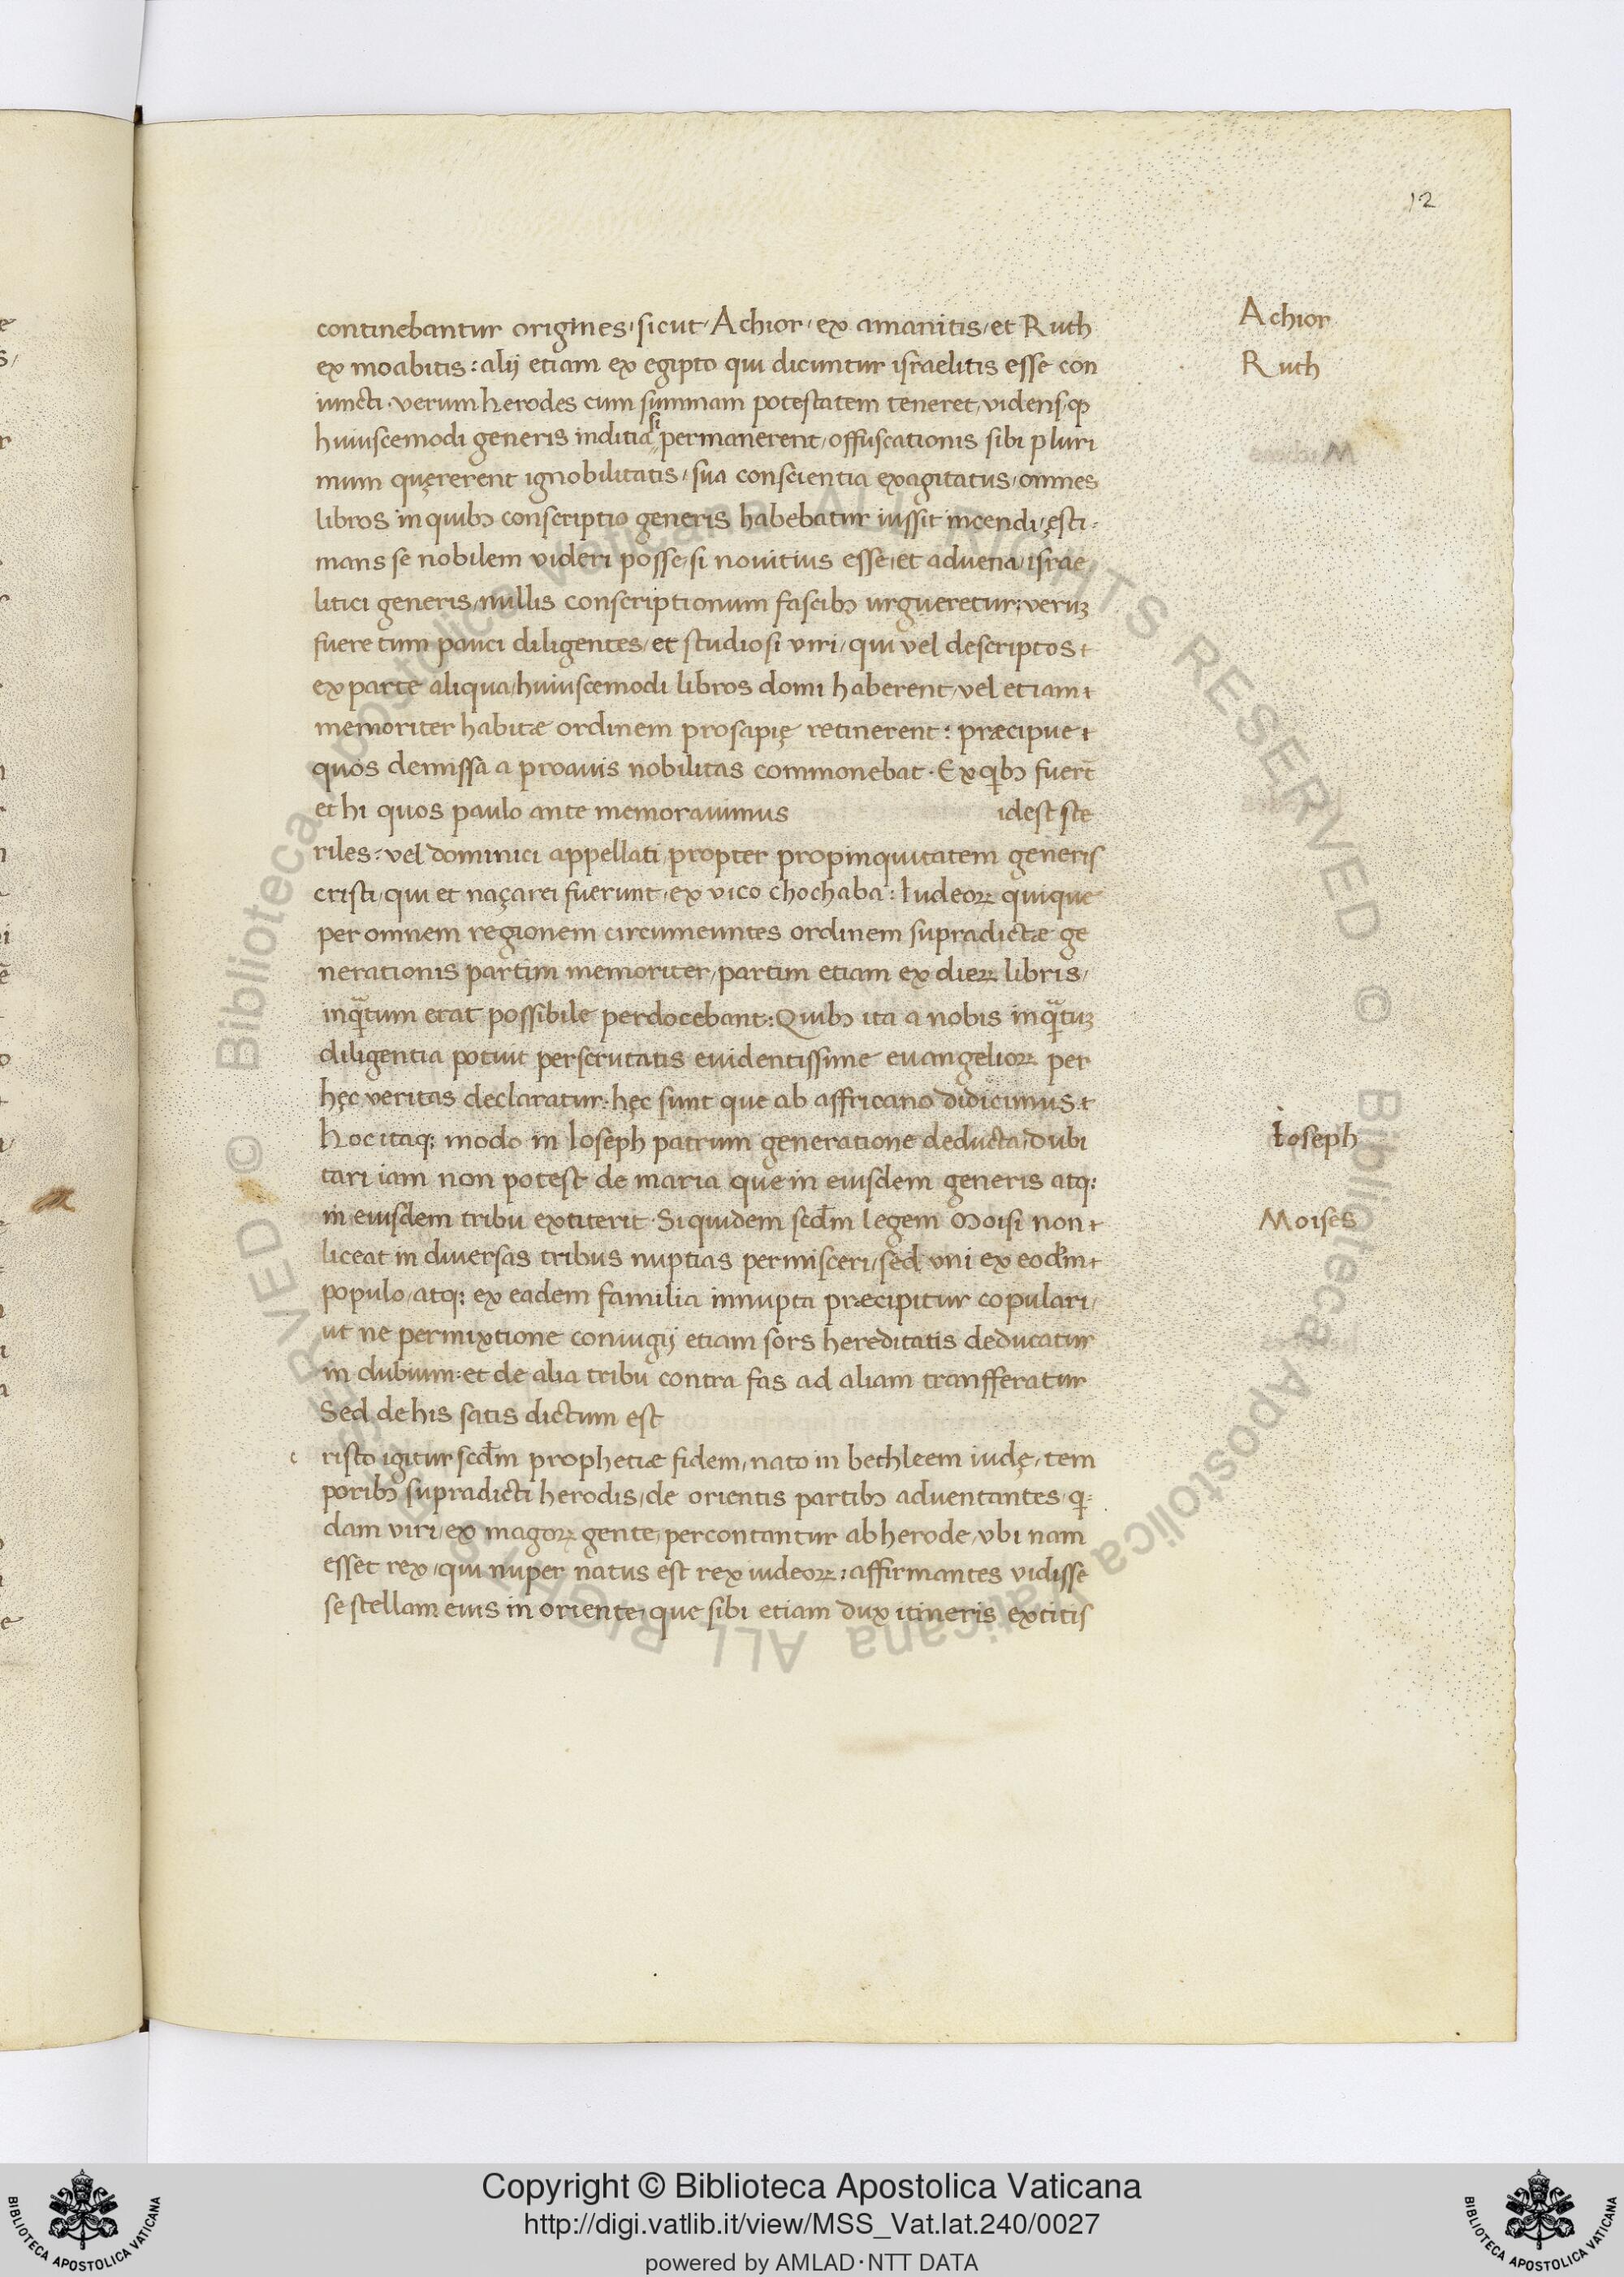 12
continebantur origines, sicut, Achior, ex amanitis, et Ruth
Achior
ex moabitis: alij etiam ex egipto qui dicuntur israelitis esse con
Ruth
iuncti. verum herodes cum summam potestatem teneret, vidensq̨
huiuscemodi generis inditia si permanerent, offuscationis sibi pluri
mum quęrerent ignobilitatis, sua conscientia exagitatus, omnes
libros in quibꝫ conscriptio generis habebatur iussit incendi, ęsti-
mans se nobilem videri posse, si novitius esse, et advena, israe
litici generis, nullis conscriptionum fascibꝫ urgueretur: verūꝫ
fuere tum pauci diligentes, et studiosi viri, qui vel descriptos
ex parte aliqua, huiuscemodi libros domi haberent, vel etiam
memoriter habitæ ordinem prosapię retinerent: præcipue
quos demissa a proavis nobilitas commonebat. Ex qibꝫ fuert̄
et hi quos paulo ante memoravimus idest ste
riles: vel dominici appellati, propter propinquitatem generis
cristi, qui et naçarei fuerunt, ex vico chochaba: Iudeoꝝ quique
per omnem regionem circumeuntes ordinem supradictæ ge
nerationis partim memoriter, partim etiam ex dieꝝ libris,
inqᵃtum erat possibile perdocebant: Quibꝫ ita a nobis inqᵃtuꝫ
diligentia potuit perscrutatis evidentissime evangelioꝝ per
hęc veritas declaratur: hęc sunt que ab affricano didicimus.
Hoc itaq; modo in Ioseph patrum generatione deducta, dubi
Ioseph
tari iam non potest de maria que in eiusdem generis atq;
in eiusdem tribu extiterit. Siquidem scd̄m legem Moisi non
Moises
liceat in diversas tribus nuptias permisceri, sed vni ex eodm̄
populo, atq; ex eadem familia innupta præcipitur copulari,
ut ne permixtione coniugij etiam sors hereditatis deducatur
in dubium: et de alia tribu contra fas ad aliam transferatur
Sed de his satis dictum est
c risto igitur scd̄m prophetiæ fidem, nato in bethleem iudę, tem
poribꝫ supradicti herodis, de orientis partibꝫ adventantes, qi-
dam viri, ex magoꝝ gente, percontantur ab herode, vbi nam
esset rex, qui nuper natus est rex iudeoꝝ: affirmantes vidisse
se stellam eius in oriente, que sibi etiam dux itineris extitis
Copyright © Biblioteca Apostolica Vaticana
http://digi.vatlib.it/view/MSS_Vat.lat.240/0027
powered by AMLAD·NTT DATA